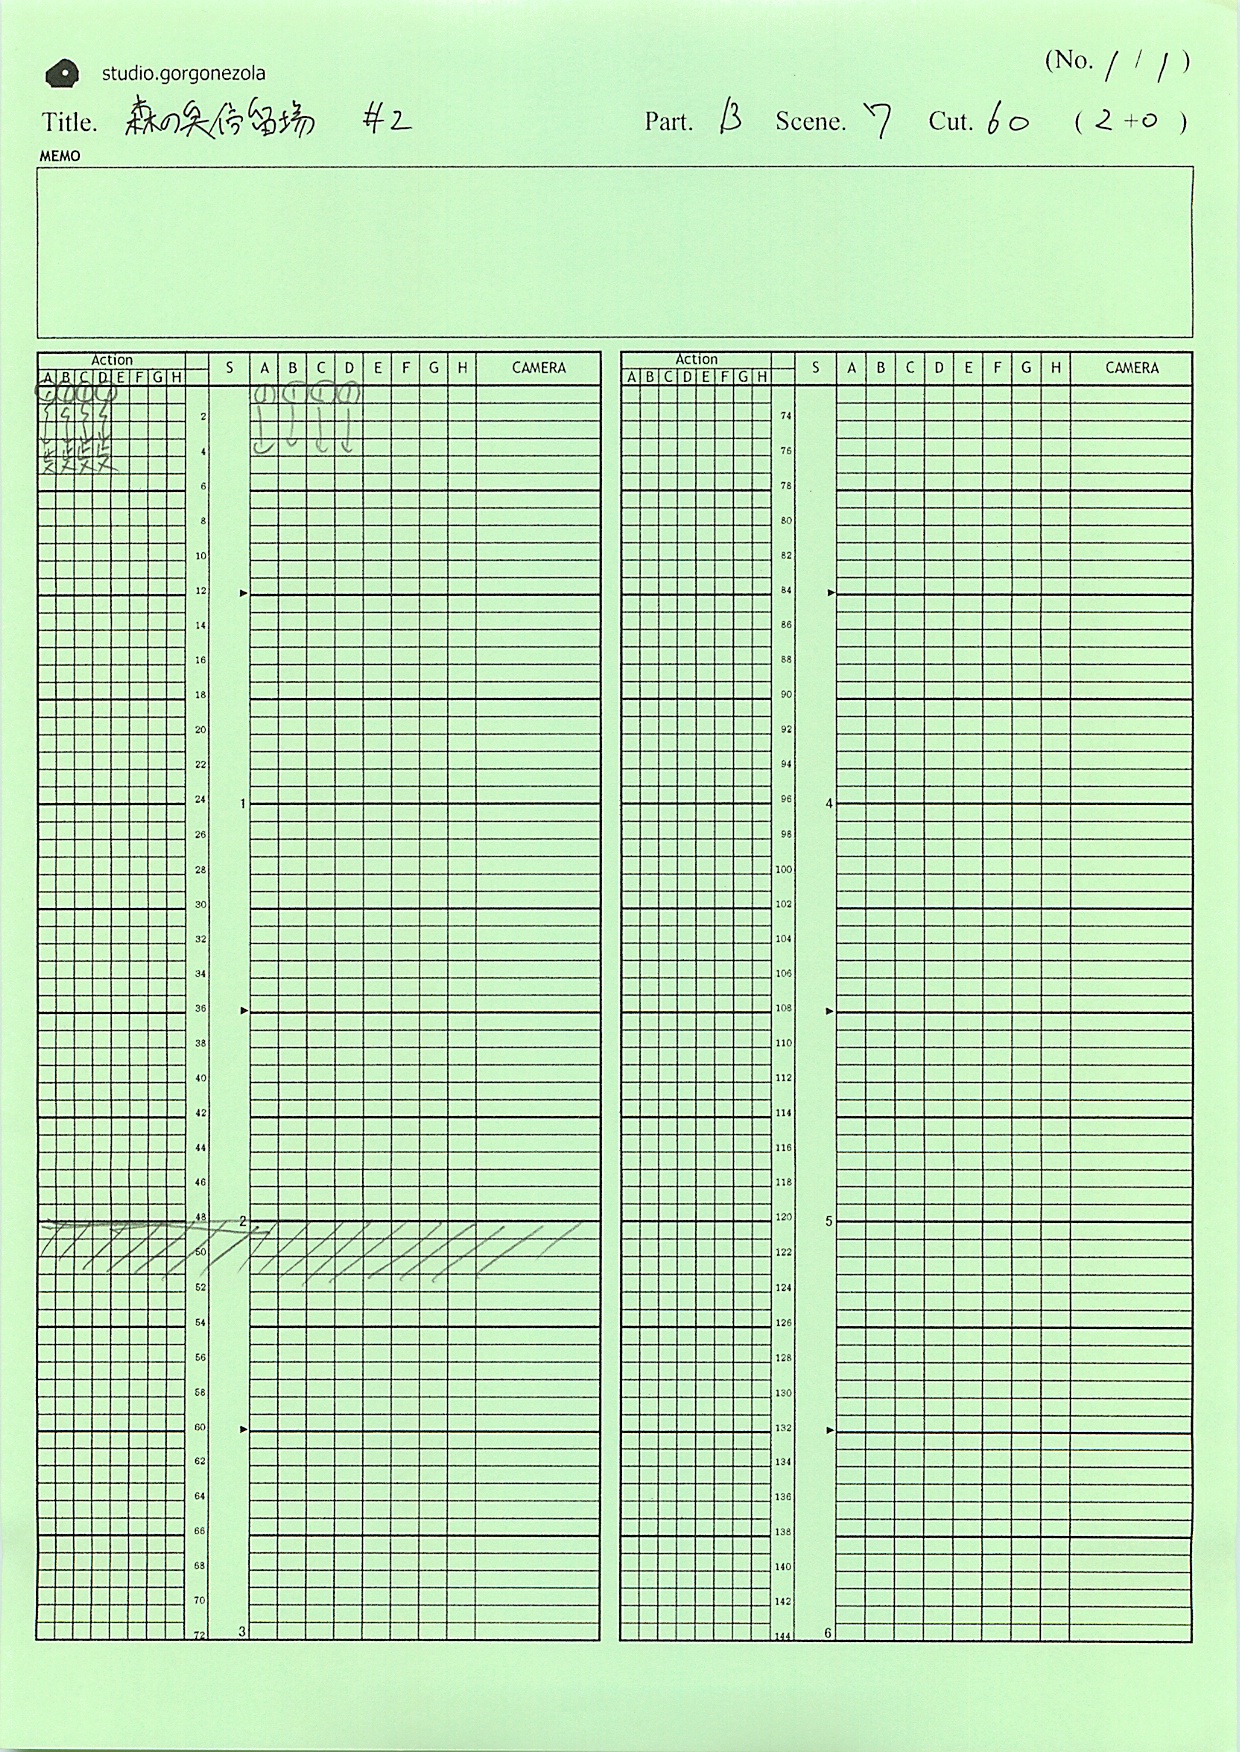 studio.gorgonezola
(No. 1 / 1 )
Title. 森の停留場 #2 Part. B Scene. 7 Cut. 60 ( 2 +0 )
MEMO
Action S A B C D E F G H CAMERA
A B C D E F G H
① ① ① ① ① ① ① ①
2
4
止メ 止メ 止メ 止メ
6
8
10
12
14
16
18
20
22
24 1
26
28
30
32
34
36
38
40
42
44
46
48 2
50
52
54
56
58
60
62
64
66
68
70
72 3
Action S A B C D E F G H CAMERA
A B C D E F G H
74
76
78
80
82
84
86
88
90
92
94
96 4
98
100
102
104
106
108
110
112
114
116
118
120 5
122
124
126
128
130
132
134
136
138
140
142
144 6